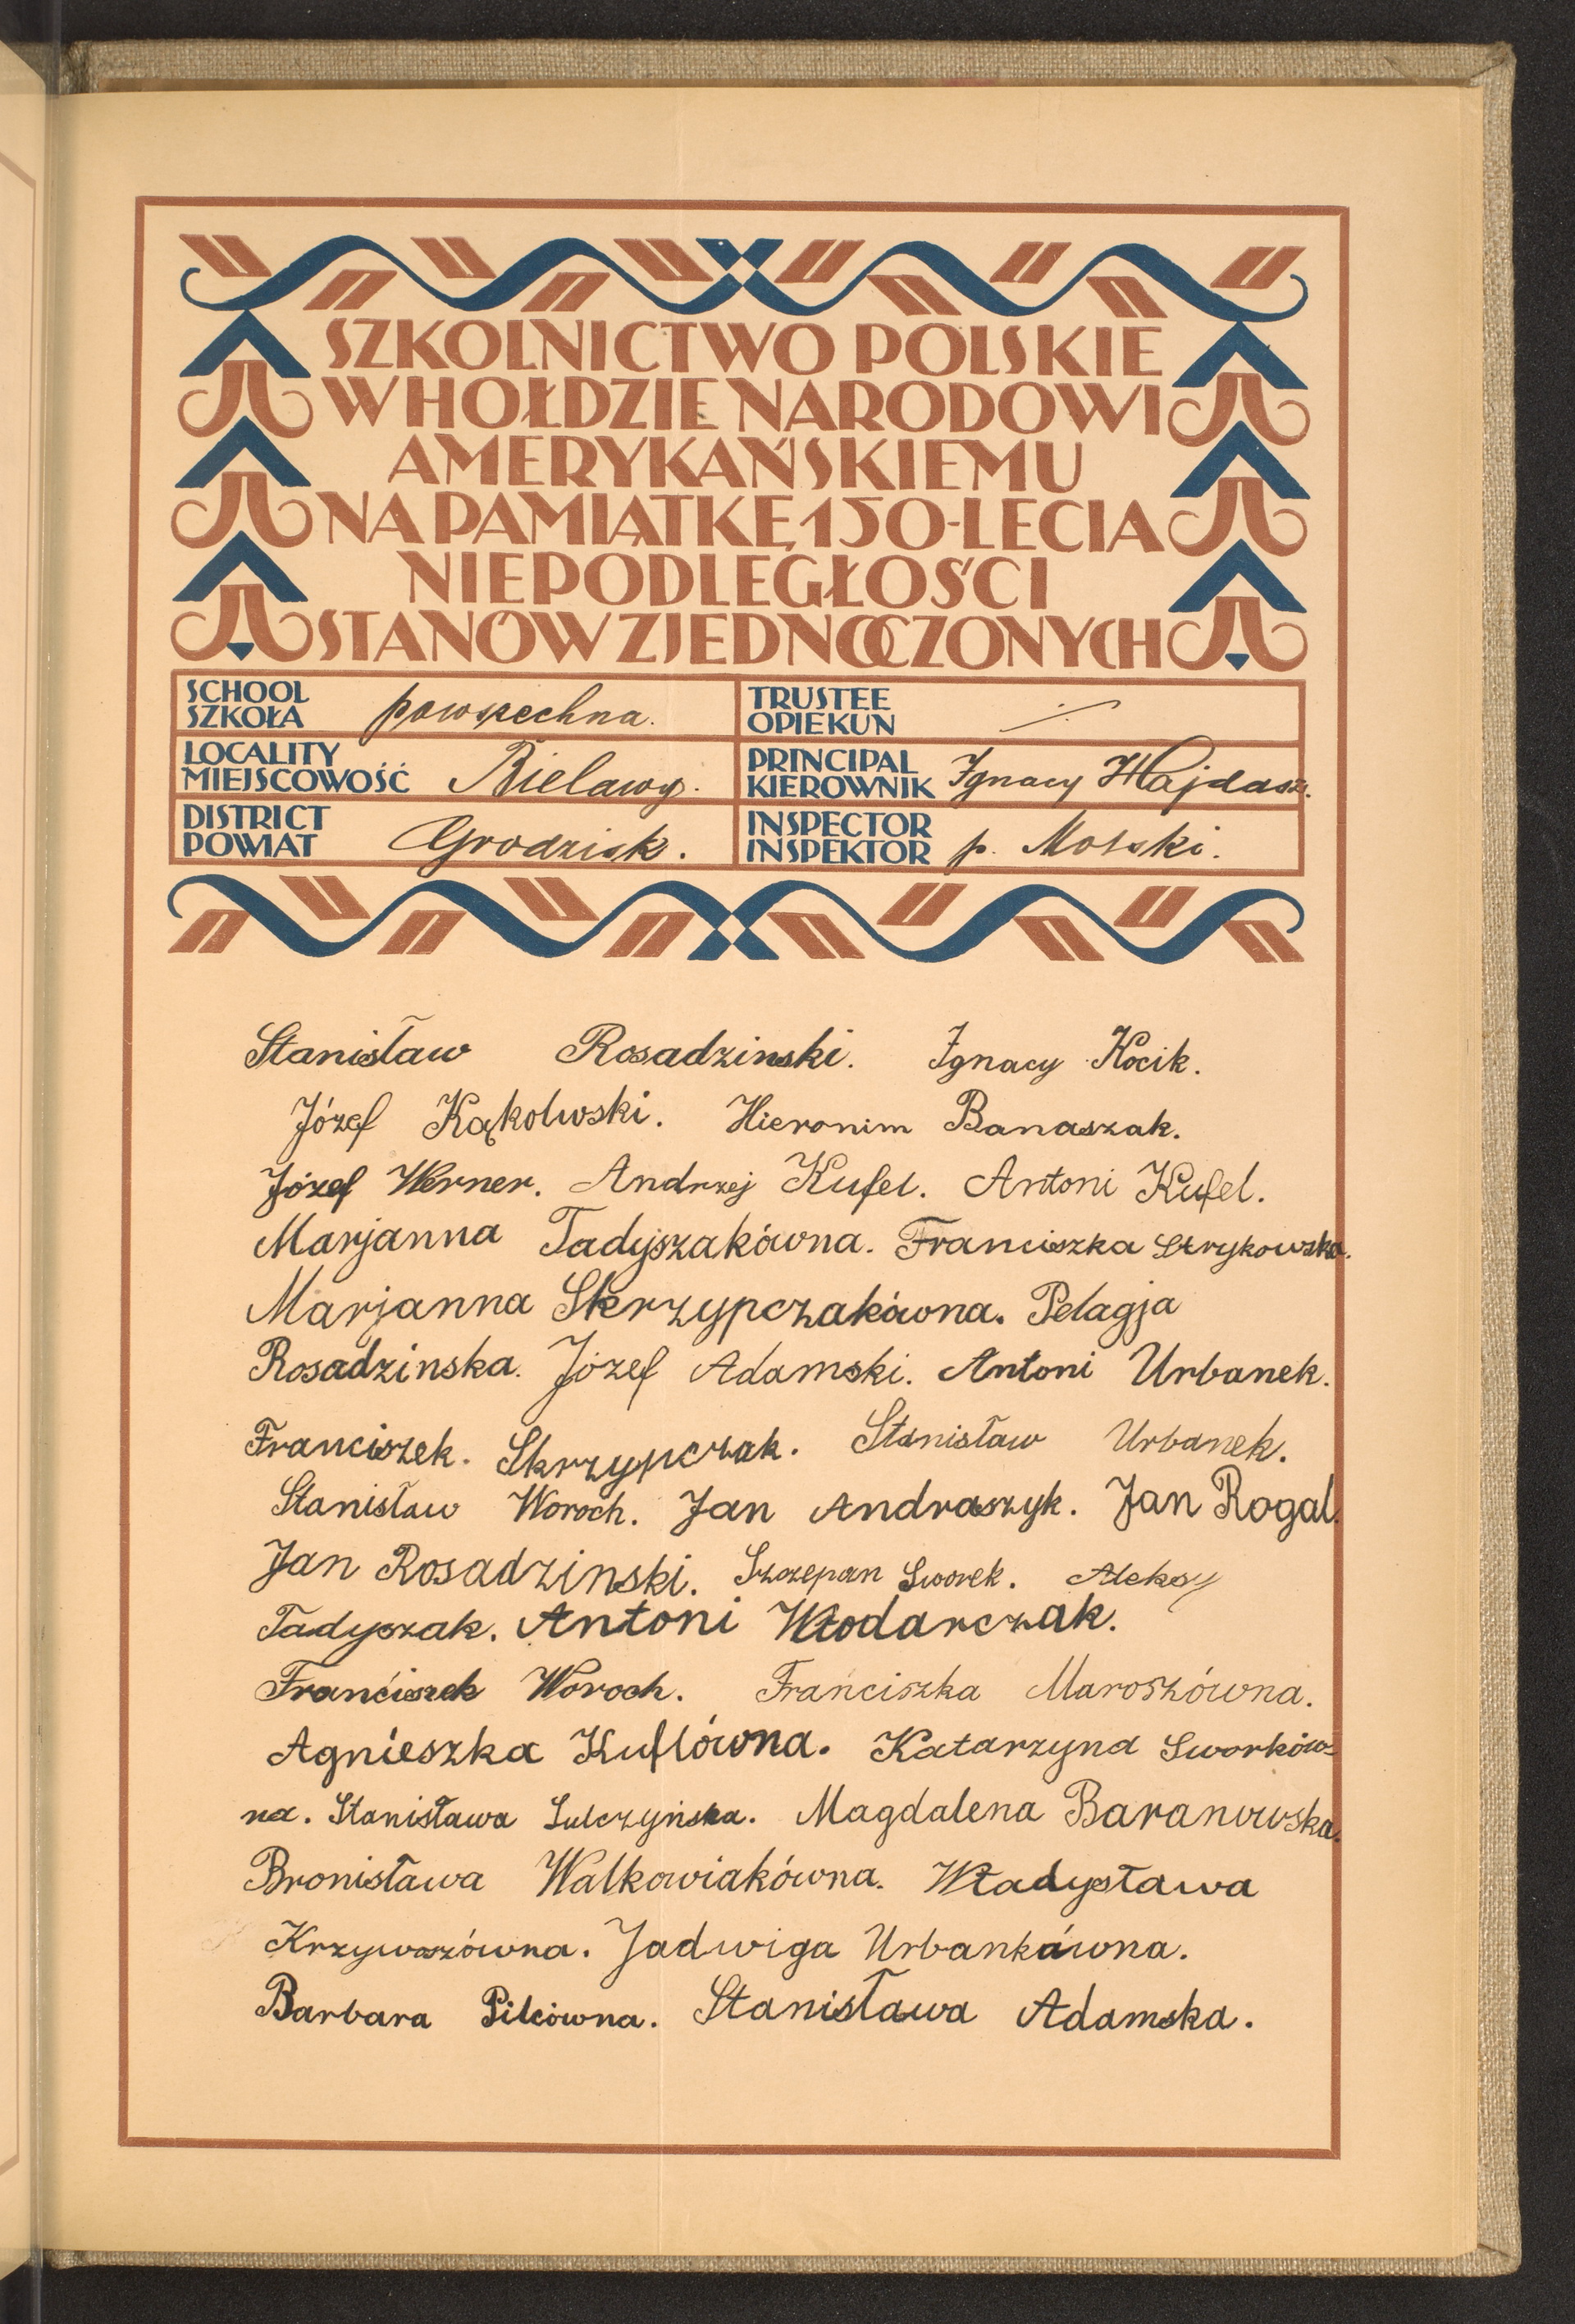 SZKOLNICTWO POLSKIE
W HOŁDZIE NARODOWI
AMERYKAŃSKIEMU
NA PAMIĄTKĘ 150-LECIA
NIEPODLEGŁOŚCI
STANÓW ZJEDNOCZONYCH
SCHOOL
SZKOŁA powszechna.
TRUSTEE
OPIEKUN
LOCALITY
MIEJSCOWOŚĆ Bielawy.
PRINCIPAL
KIEROWNIK Ignacy Hajdasz.
DISTRICT
POWIAT Grodzisk.
INSPECTOR
INSPEKTOR p. Mosski.
Stanisław Rosadzinski. Ignacy Kocik.
Józef Kąkolwski. Hieronim Banaszak.
Józef Werner. Andrzej Kufel. Antoni Kufel.
Marjanna Tadyszakówna. Franciszka Strykowska.
Marjanna Skrzypczakówna. Pelagja
Rosadzinska. Józef Adamski. Antoni Urbanek.
Franciszek. Skrzypczak. Stanisław Urbanek.
Stanisław Woroch. Jan Andraszyk. Jan Rogal.
Jan Rosadzinski. Szczepan Sworek. Aleksy
Tadyszak. Antoni Włodarczak.
Franciszek Woroch. Franciszka Maroszówna.
Agnieszka Kuflówna. Katarzyna Sworków-
na. Stanisława Sulczyńska. Magdalena Baranowska.
Bronisława Walkowiakówna. Władysława
Krzywoszówna. Jadwiga Urbankówna.
Barbara Pilcówna. Stanisława Adamska.